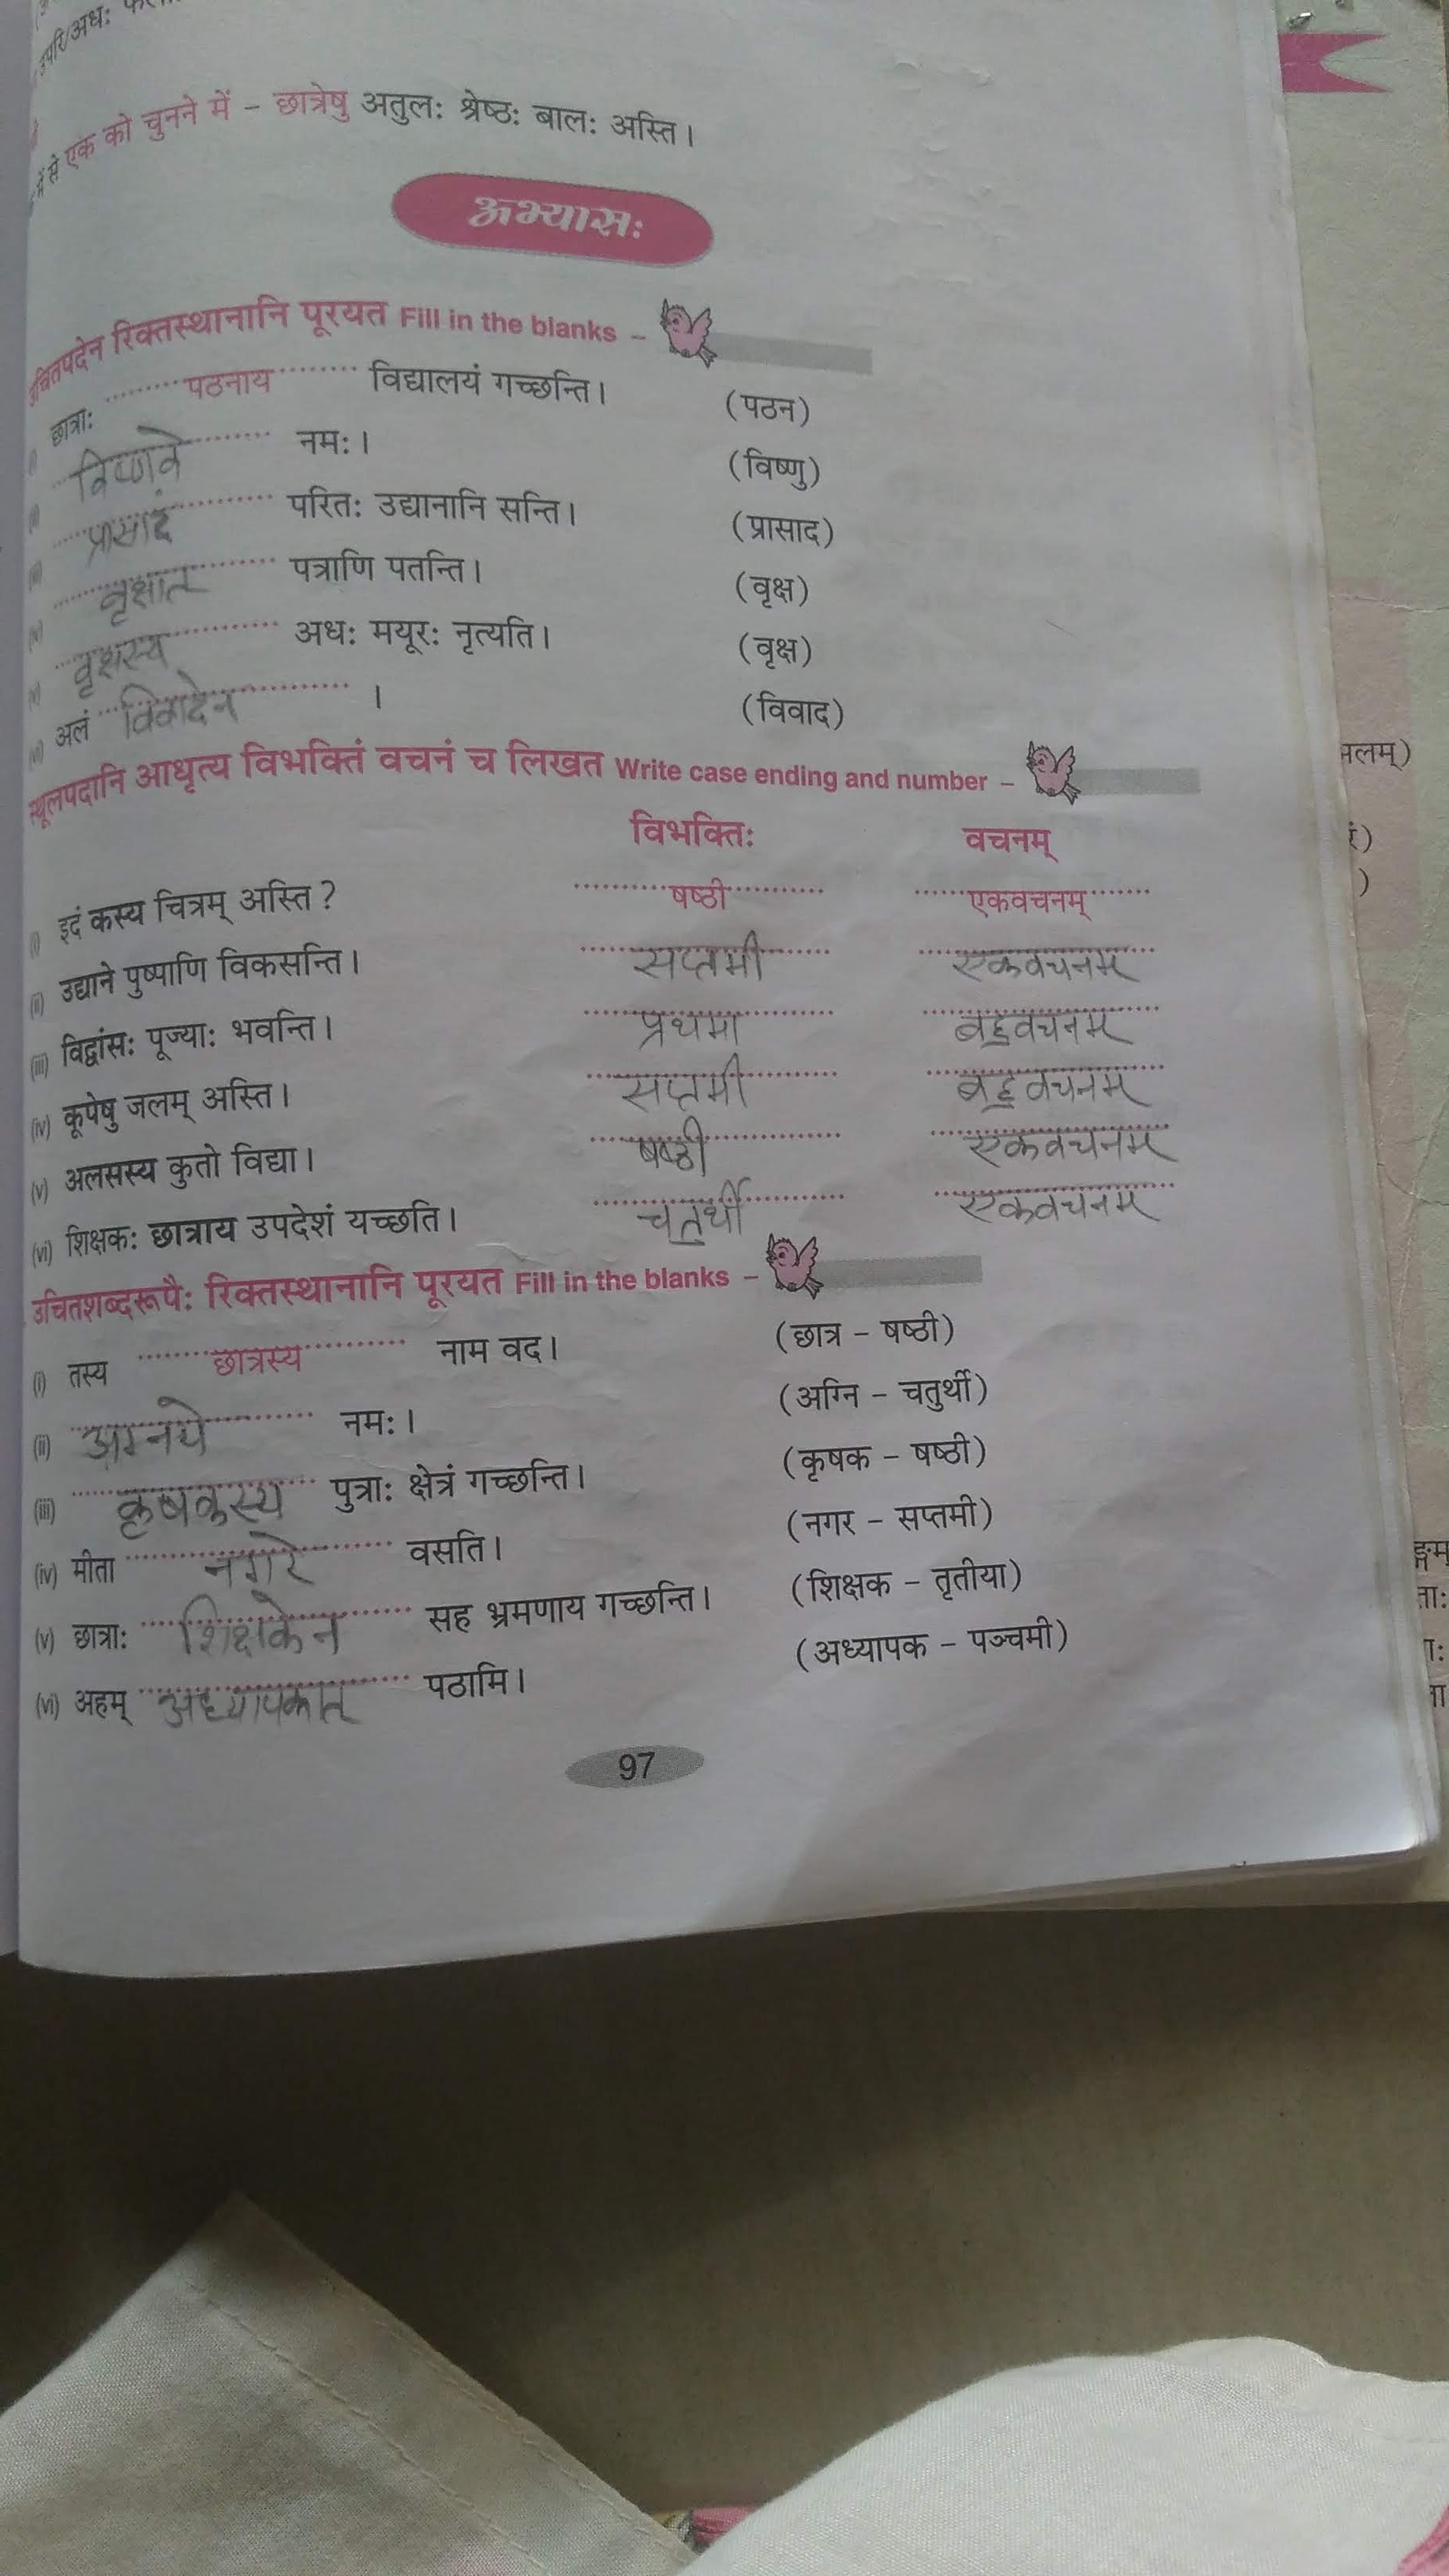 उपरि/अधः
में से एक को चुनने में – छात्रेषु अतुलः श्रेष्ठः बालः अस्ति।
अभ्यासः
उचितपदेन रिक्तस्थानानि पूरयत Fill in the blanks –
छात्राः पठनाय विद्यालयं गच्छन्ति। (पठन)
विष्णवे नमः। (विष्णु)
प्रासादं परितः उद्यानानि सन्ति। (प्रासाद)
वृक्षात् पत्राणि पतन्ति। (वृक्ष)
वृक्षस्य अधः मयूरः नृत्यति। (वृक्ष)
(vi) अलं विवादेन । (विवाद)
स्थूलपदानि आधृत्य विभक्तिं वचनं च लिखत Write case ending and number –
विभक्तिः वचनम्
(i) इदं कस्य चित्रम् अस्ति ? षष्ठी एकवचनम्
(ii) उद्याने पुष्पाणि विकसन्ति। सप्तमी एकवचनम्
(iii) विद्वांसः पूज्याः भवन्ति। प्रथमा बहुवचनम्
(iv) कूपेषु जलम् अस्ति। सप्तमी बहुवचनम्
(v) अलसस्य कुतो विद्या। षष्ठी एकवचनम्
(vi) शिक्षकः छात्राय उपदेशं यच्छति। चतुर्थी एकवचनम्
उचितशब्दरूपैः रिक्तस्थानानि पूरयत Fill in the blanks –
(i) तस्य छात्रस्य नाम वद। (छात्र – षष्ठी)
(ii) अग्नये नमः। (अग्नि – चतुर्थी)
(iii) कृषकस्य पुत्राः क्षेत्रं गच्छन्ति। (कृषक – षष्ठी)
(iv) मीता नगरे वसति। (नगर – सप्तमी)
(v) छात्राः शिक्षकेन सह भ्रमणाय गच्छन्ति। (शिक्षक – तृतीया)
(vi) अहम् अध्यापकात् पठामि। (अध्यापक – पञ्चमी)
97